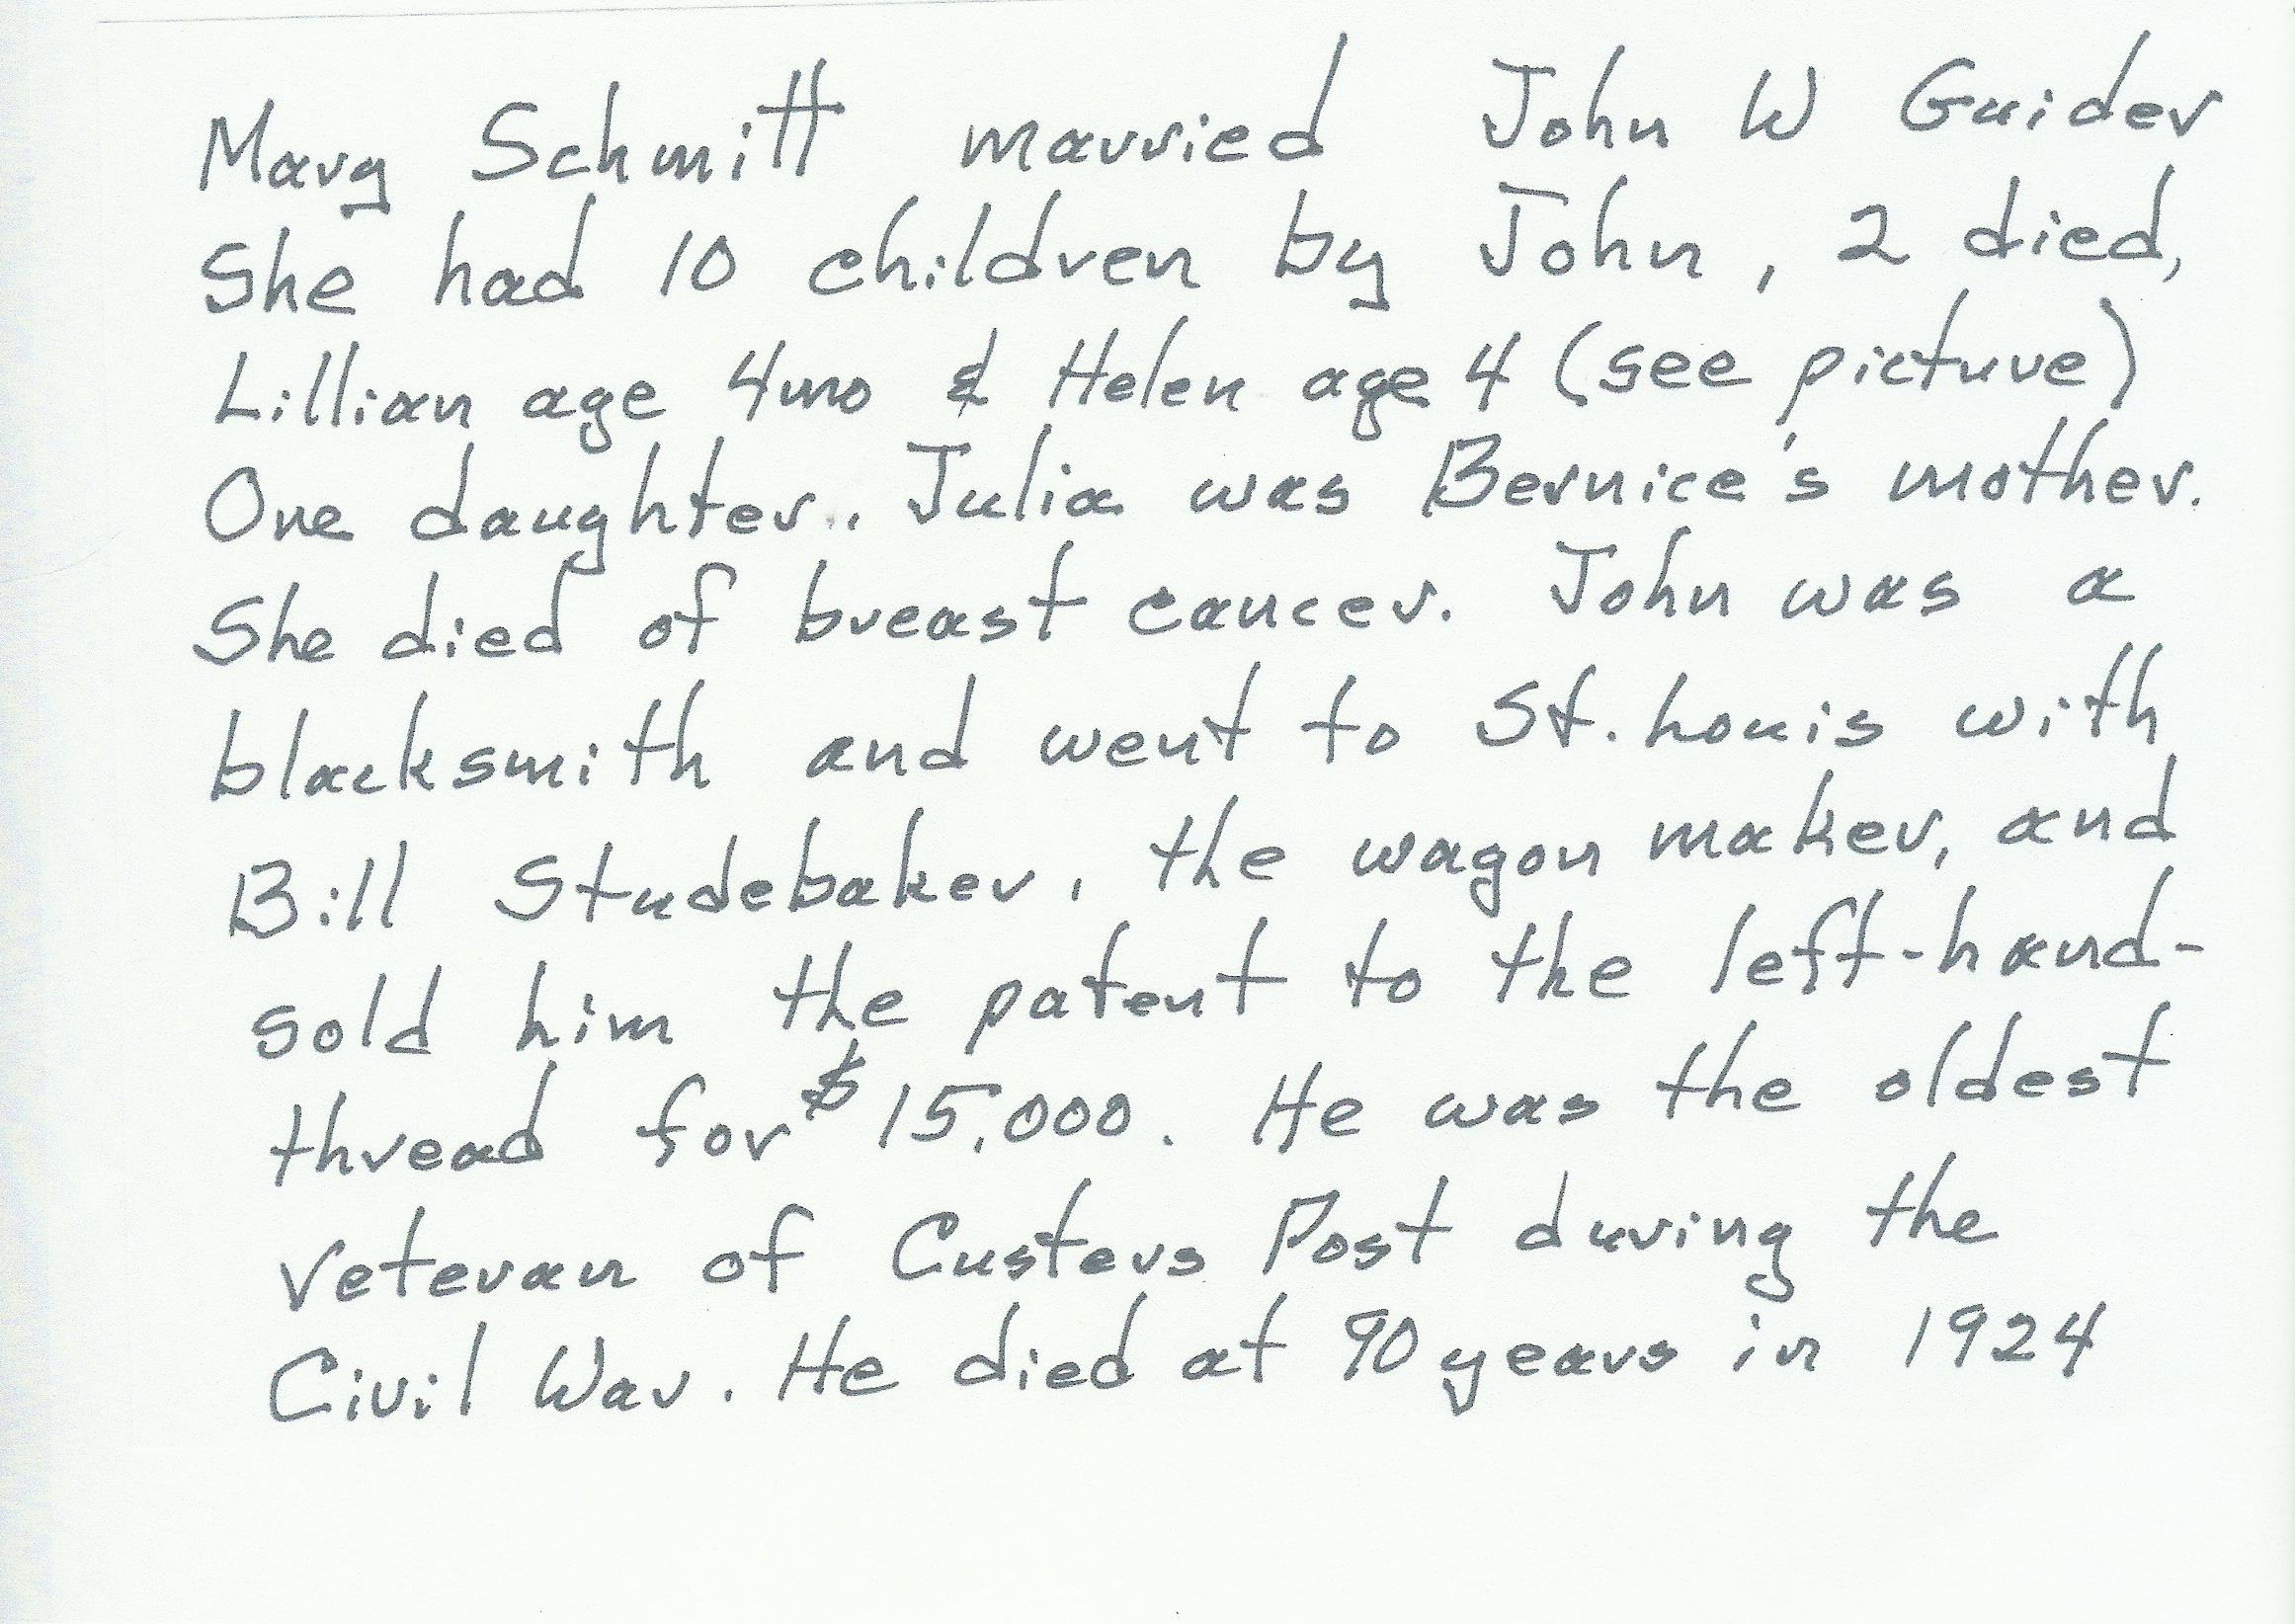 Mary Schmitt married John W Guider
She had 10 children by John, 2 died,
Lillian age 4mo & Helen age 4 (see picture)
One daughter.. Julia was Bernice's mother.
She died of breast cancer. John was a
blacksmith and went to St. Louis with
Bill Studebaker, the wagon maker, and
sold him the patent to the left-hand-
thread for $15,000. He was the oldest
veteran of Custers Post during the
Civil War. He died at 90 years in 1924